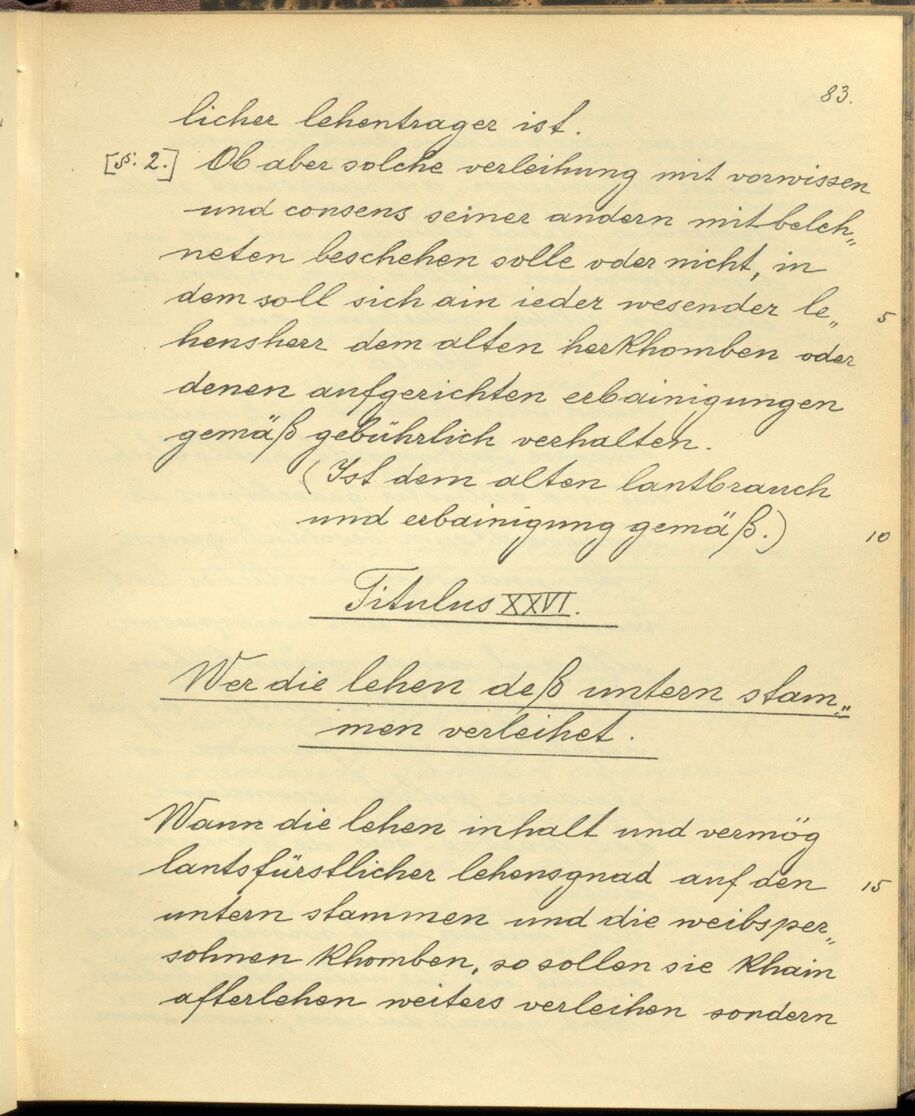 83.
licher lehentrager ist.
[§: 2.] Ob aber solche verleihung mit vorwissen
und consens seiner andern mitbeleh„
neten beschehen solle oder nicht, in
dem soll sich ain ieder wesender le„
5
hensherr dem alten herkhomben oder
denen aufgerichten erbainigungen
gemäß gebührlich verhalten.
(Ist dem alten lantbrauch
und erbainigung gemäß.)
10
Titulus XXVI.
Wer die lehen deß untern stam„
men verleihet.
Wann die lehen inhalt und vermög
lantsfürstlicher lehensgnad auf den
15
untern stammen und die weibsper„
sohnen khomben, so sollen sie khain
afterlehen weiters verleihen sondern